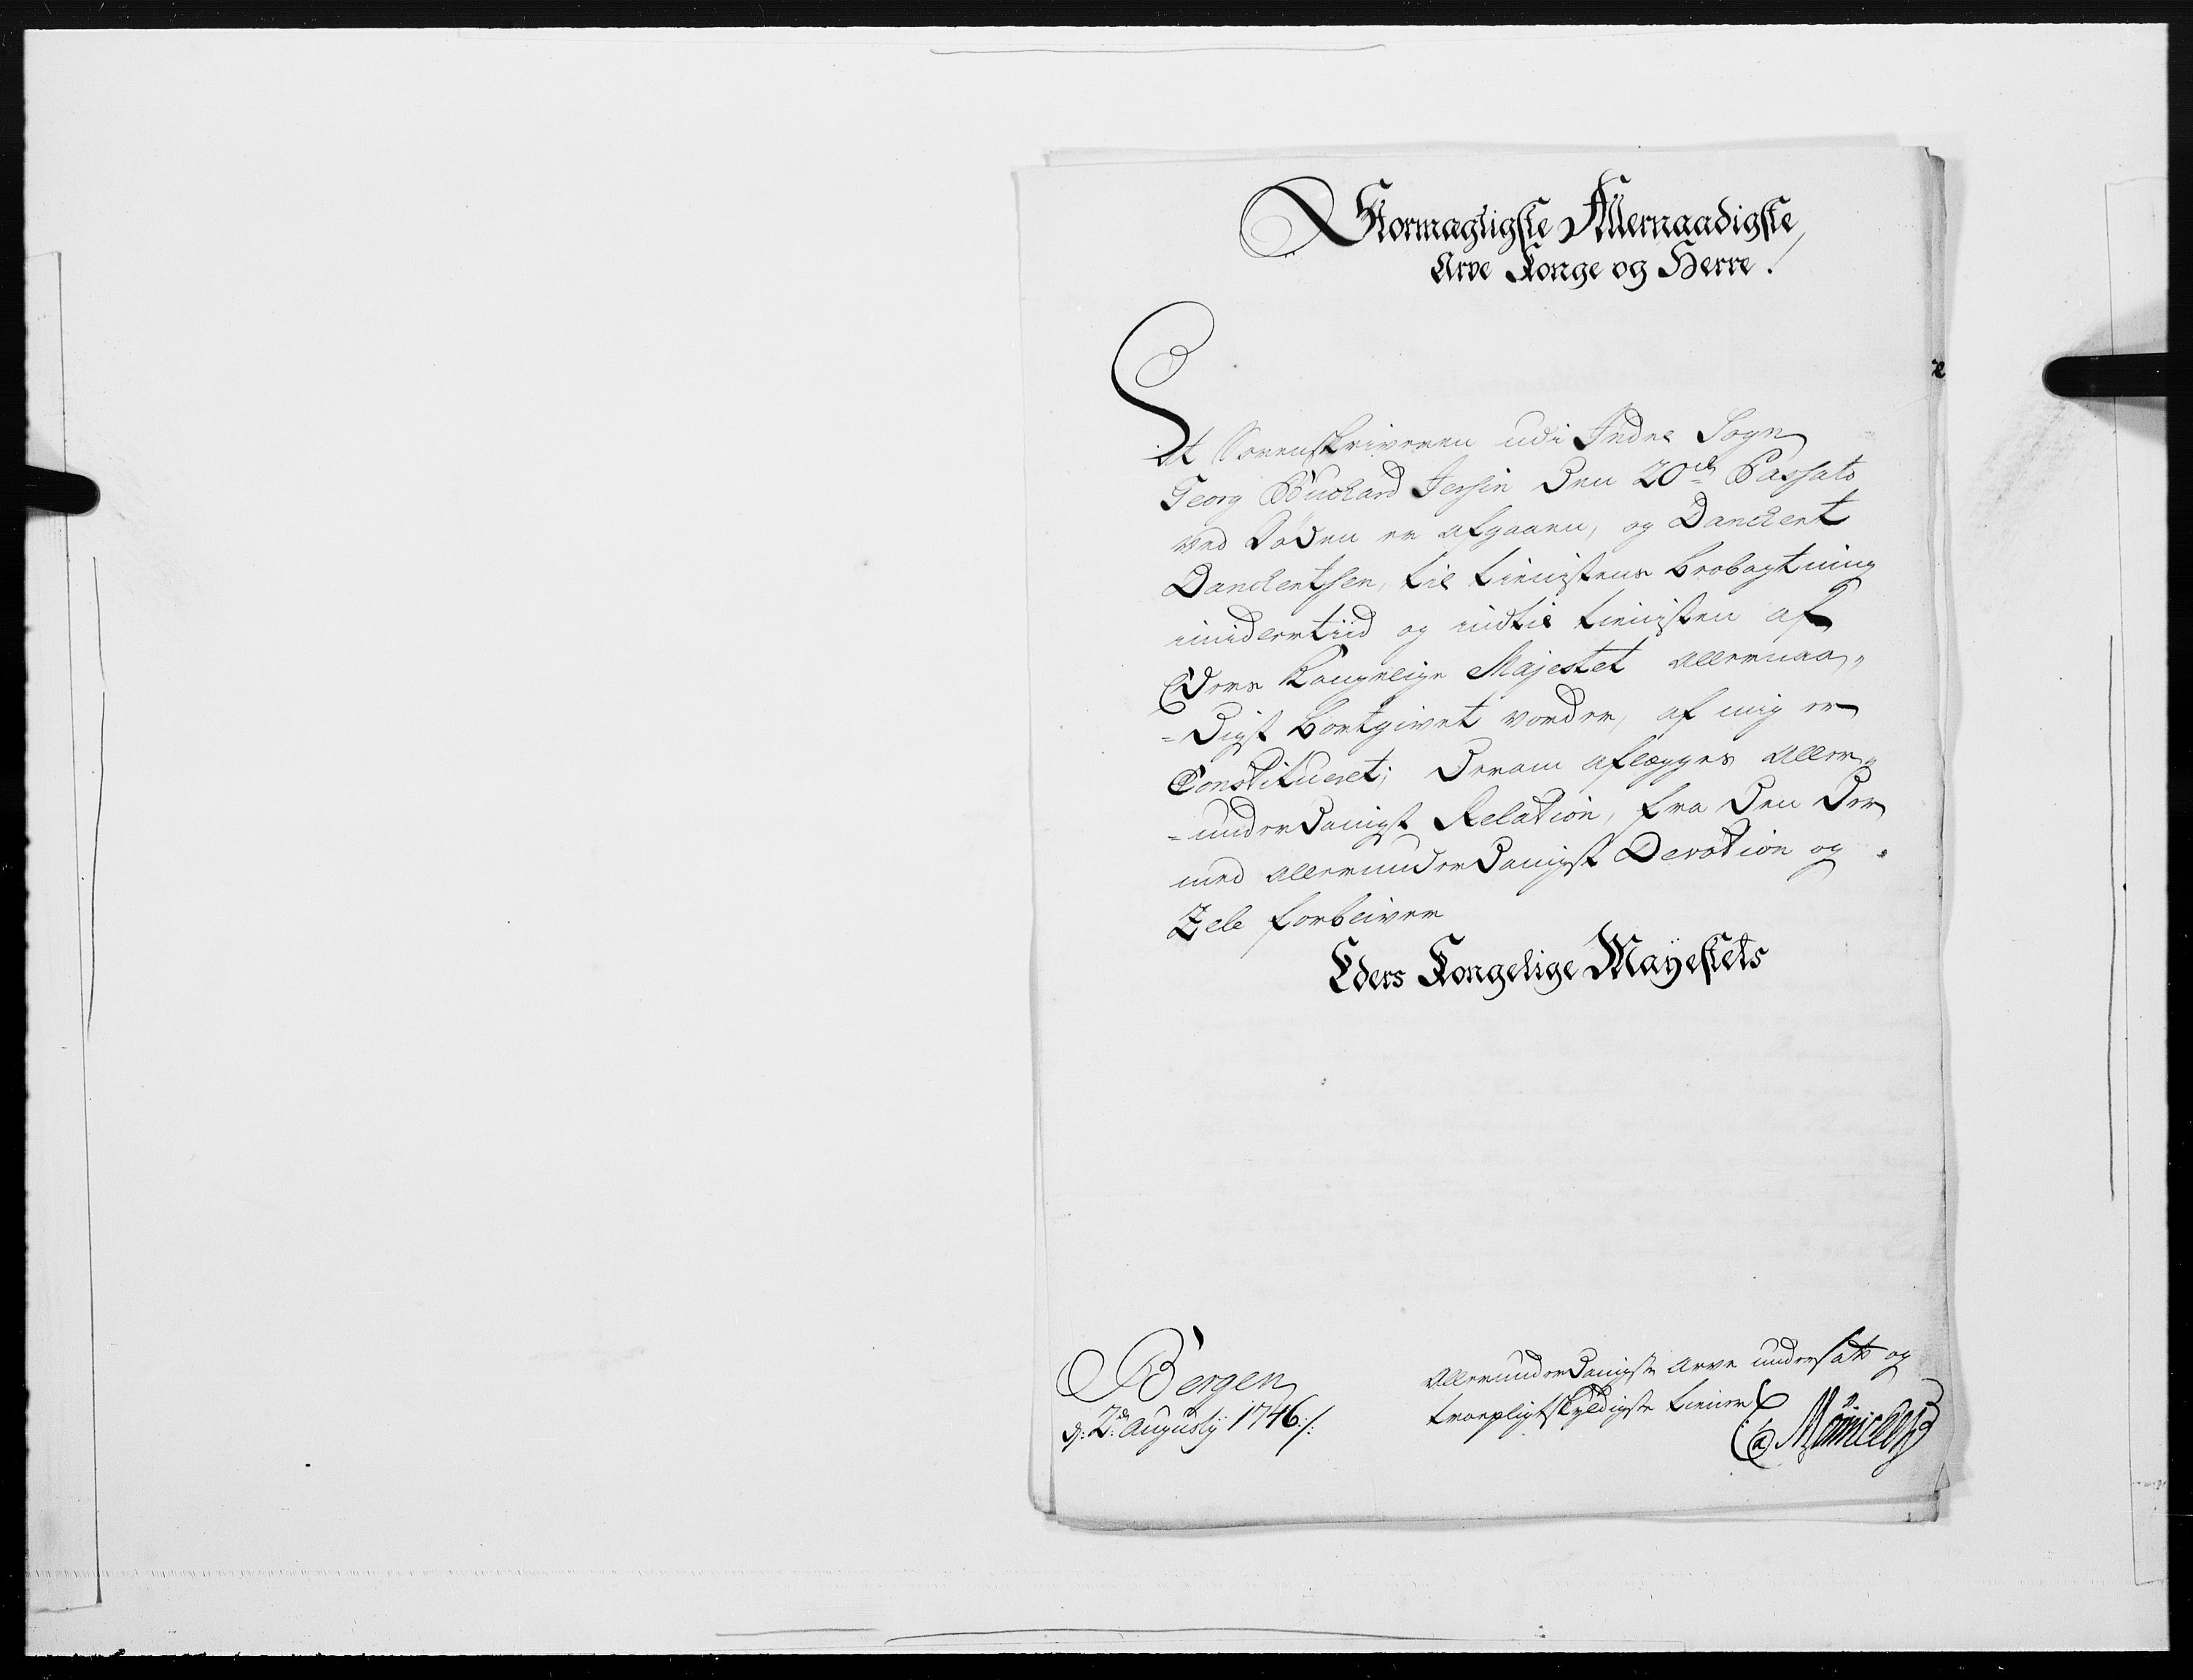 Stormagtigste Allernaadigste
Arve Konge og Herre!
At Sorenskriveren udi Indre Sogn
Georg Buchard Jersin den 20de Passato
ved Døden er afgaaen, og Danckert
Danckertsen, til tienistens Beobagtning
imidlertiid og indtil tienisten af
Eders Kongelige Majestet allernaa„
=digst bortgivet vorder, af mig er
Constitueret; derom aflægges aller„
=underdanigst Relation, fra den der
med allerunderdanigst Devotion og
Zele forbliver
Eders Kongelige Mayestets
Bergen
d: 2de Augusty 1746:/:
allerunderdanigste arve undersaatt og
troepligtskyldigste tiener